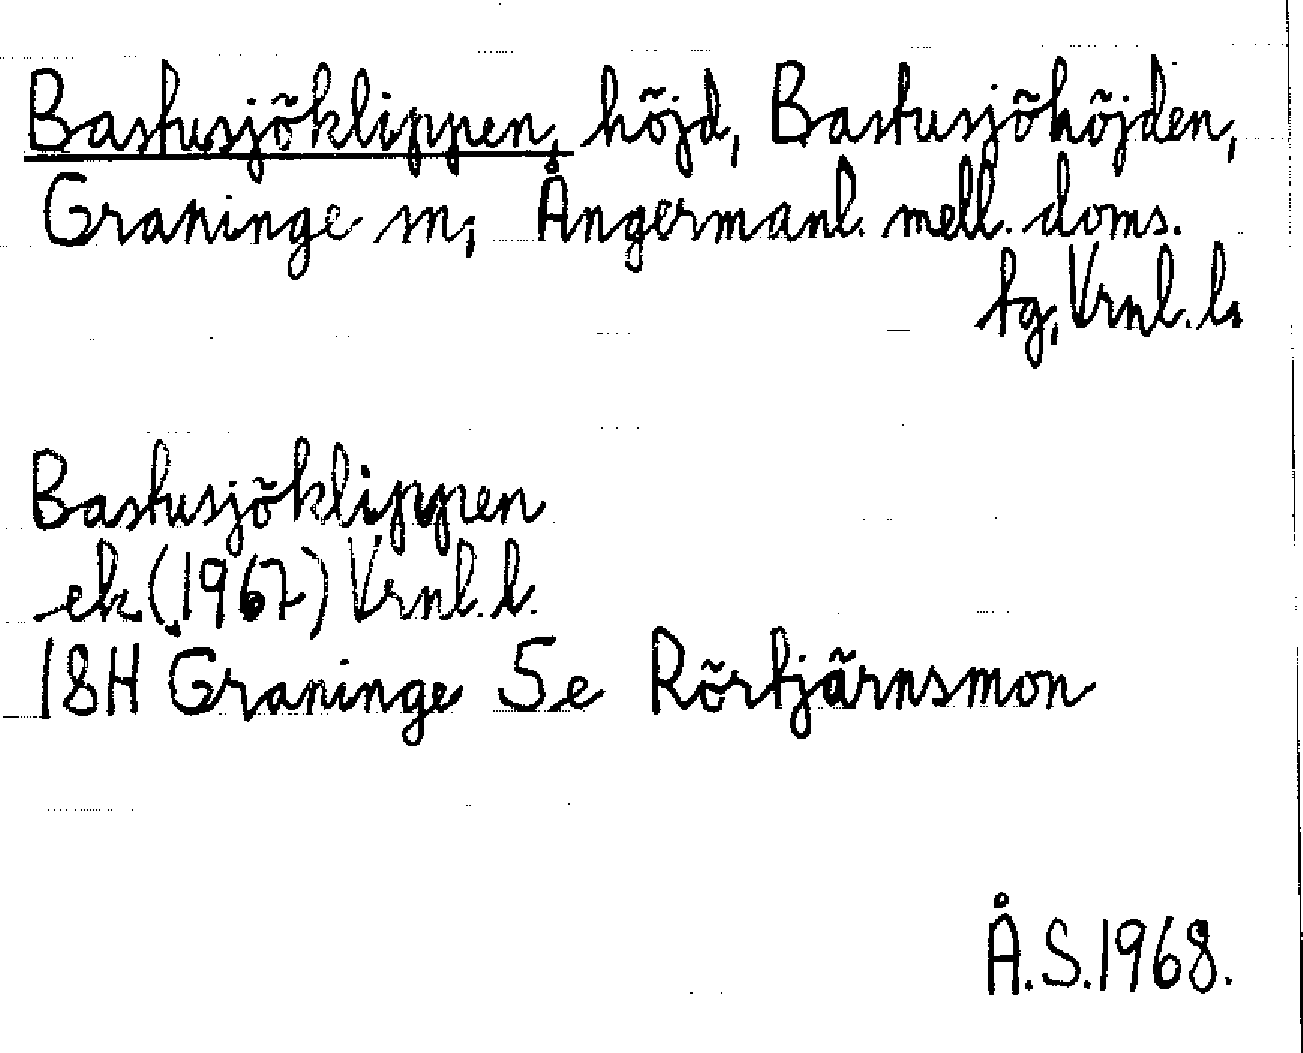 Bastusjöklippen, höjd, Bastusjöhöjden,
Graninge sn, Ångermanl. mell. doms.
tg, Vrnl. l.
Bastusjöklippen
ek (1967) Vrnl. l.
18H Graninge 5e Rörtjärnsmon
Å.S. 1968.